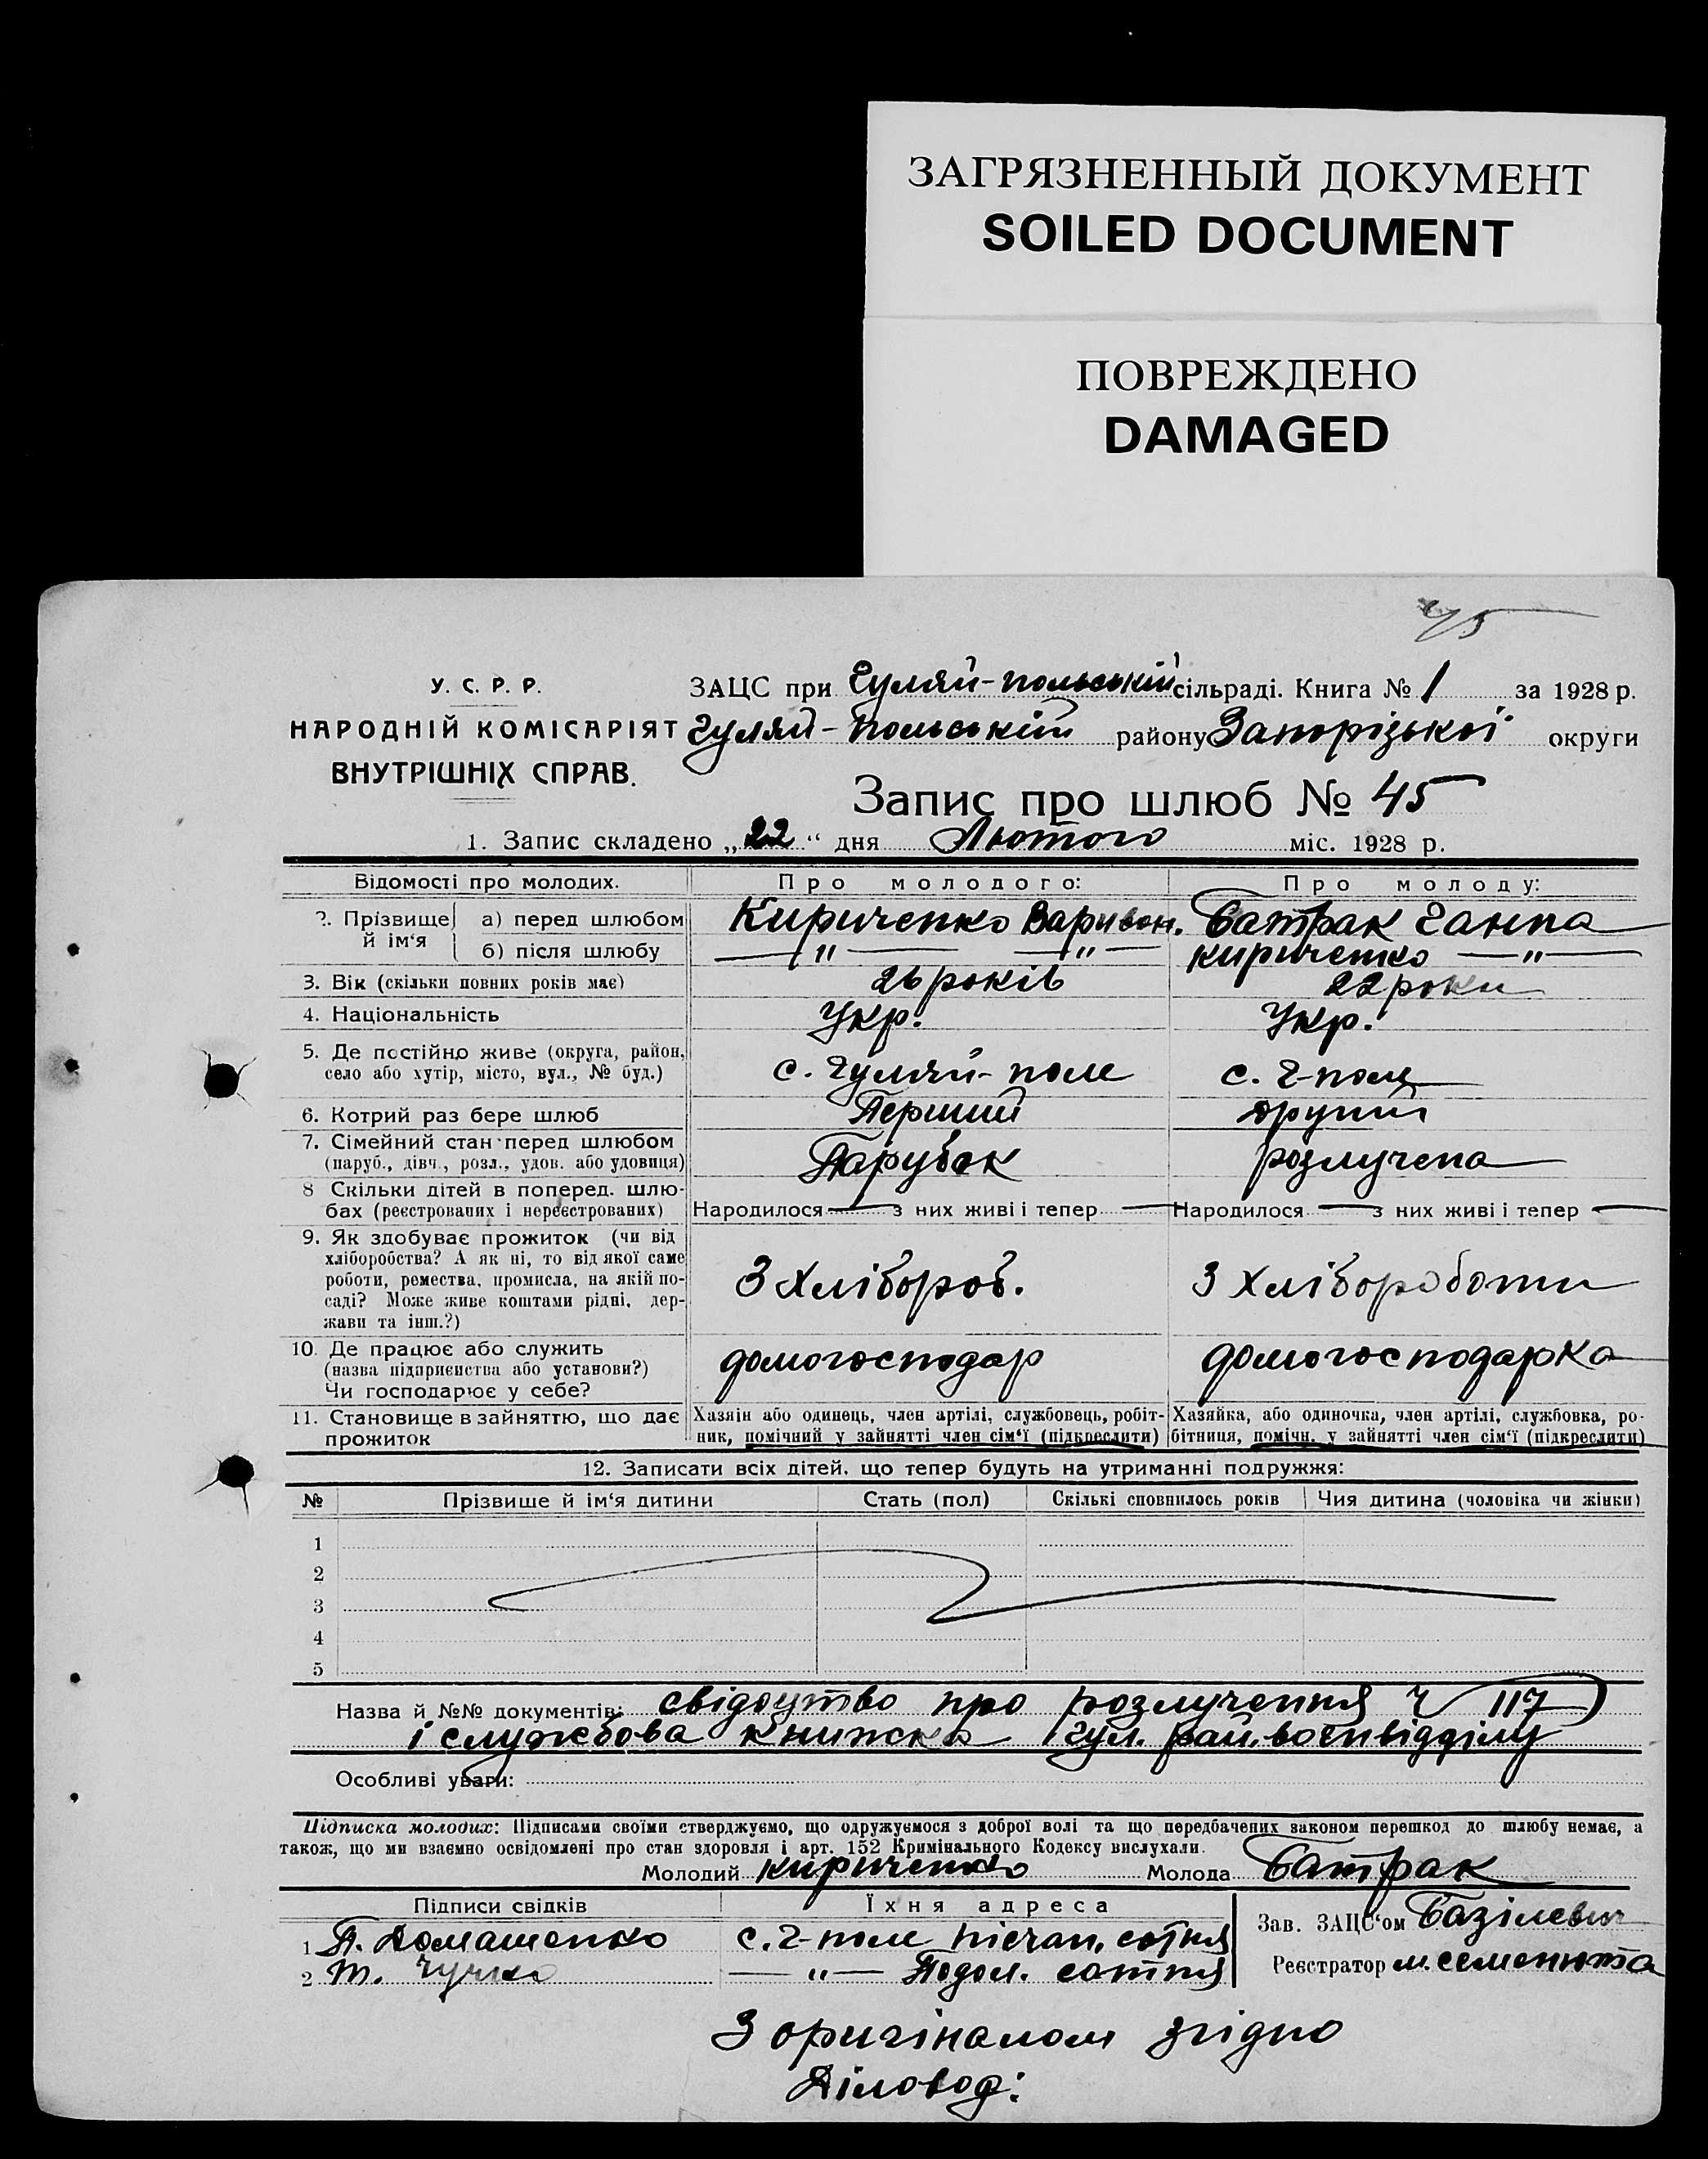 ЗАГРЯЗНЕННЫЙ ДОКУМЕНТ
SOILED DOCUMENT
ПОВРЕЖДЕНО
DAMAGED
45
У. С. Р. Р.
НАРОДНІЙ КОМІСАРІЯТ
ВНУТРІШНІХ СПРАВ.
ЗАЦС при Гуляй-польській сільраді. Книга № 1 за 1928 р.
Гуляй-Польській району Запорізької округи
Запис про шлюб № 45
1. Запис складено „22“ дня Лютого міс. 1928 р.
Відомості про молодих. Про молодого: Про молоду:
2. Прізвище й ім‘я а) перед шлюбом Кириченко Варивон. Батрак Ганна
б) після шлюбу — " — — " — Кириченко — " —
3. Вік (скільки повних років має) 26 років 22 роки
4. Національність Укр. Укр.
5. Де постійно живе (округа, район, с. Гуляй-поле с. Г-поле
село або хутір, місто, вул., № буд.)
6. Котрий раз бере шлюб Перший другий
7. Сімейний стан перед шлюбом Парубок розлучена
(паруб., дівч., розл., удов. або удовиця)
8 Скільки дітей в поперед. шлю-
бах (реєстрованих і нереєстрованих) Народилося — з них живі і тепер — Народилося — з них живі і тепер —
9. Як здобуває прожиток (чи від
хліборобства? А як ні, то від якої саме
роботи, ремества, промисла, на якій по- З хлібороб. З хлібороботи
саді? Може живе коштами рідні, дер-
жави та інш.?)
10. Де працює або служить домогосподар домогосподарка
(назва підприємства або установи?)
Чи господарює у себе?
11. Становище в зайняттю, що дає Хазяїн або одинець, член артілі, службовець, робіт- Хазяйка, або одиночка, член артілі, службовка, ро-
прожиток ник, помічний у зайнятті член сім‘ї (підкреслити) бітниця, помічн. у зайнятті член сім‘ї (підкреслити)
12. Записати всіх дітей, що тепер будуть на утриманні подружжя:
№ Прізвише й ім‘я дитини Стать (пол) Скількі сповнилось років Чия дитина (чоловіка чи жінки)
1
2
3
4
5
Назва й №№ документів: свідоцтво про розлучення ч 117)
і службова книжка Гул. рай. воєнвідділу
Особливі уваги:
Підписка молодих: Підписами своїми стверджуємо, що одружуємося з доброї волі та що передбачених законом перешкод до шлюбу немає, а
також, що ми взаємно освідомлені про стан здоровля і арт. 152 Кримінального Кодексу вислухали.
Молодий Кириченко Молода Батрак
Підписи свідків Їхня адреса Зав. ЗАЦС‘ом Базілевич
1 П. Домашенко с. Г-поле Пісчан. сотня
2 Т. — " — Подол. сотня Реєстратор М. Семенюта
З оригіналом згідно
Діловод: